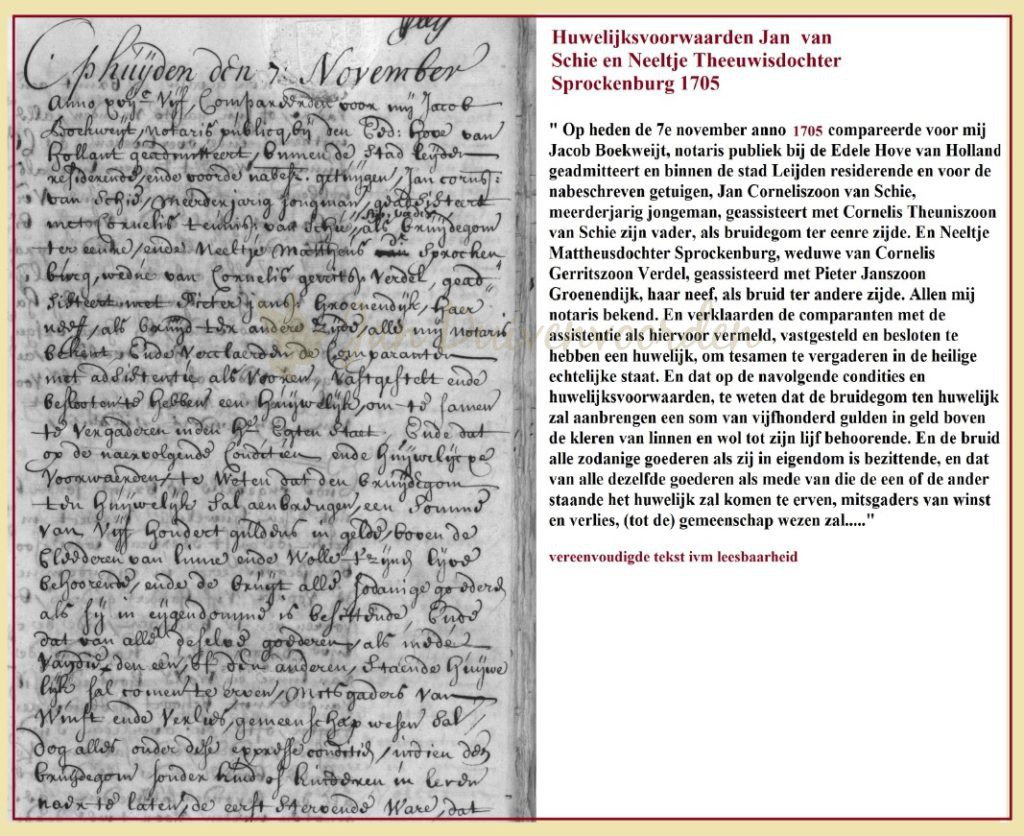 Op huijden den 7: November
Anno xvijc Vijf, Compareerden voor mij Jacob
Boekweijt, Notaris publicq, bij den Ed: Hove van
Hollant geadmitteert, binnen de Stad Leijden
residerende, ende voorde nabesr. getuijgen, Jan cornss:
van Schie, Meerderjarig Jongman, geadsisteert
met Cornelis teunisz: van Schie, zijn vader, als bruijdegom
ter eenre, ende Neeltje Mathijens Sprocken
burg, wedue van Cornelis gerritsz Verdel, gead=
sisteert met Pieter jansz: groenendijk, haer
neef, als bruijd ter andere zijde, alle mij Notaris
bekent, Ende Verclaerden de Comparanten
met adsistentie als Vooren, Vastgestelt ende
beslooten te hebben een Huijwelijk, om te samen
te Vergaderen inden He: Egten staet. Ende dat
op de naervolgende Condtien ende Huijwelijcxe
Voorwaerden, te Weten dat den bruijdegom
ten Huijwelijk sal aenbrengen, een Somme
van Vijf hondert guldens in gelde, boven de
Cleederen van linne ende Wolle t' zijnen lijve
behoorende, ende de bruijt alle sodanige goederen
als sij in eijgendomme is besittende, Ende
dat van alle deselve goederen, als mede
Vandie den een, of den anderen, staende Huijwe
lijk sal comen te erven, Mitsgaders van
Winst ende Verlies, gemeenschap wesen sal
Dog alles onder dese expresse conditie, indien den
bruijdegom sonder kind of kinderen in leven
naer te laten, de eerst stervende Ware, dat
Huwelijksvoorwaarden Jan van
Schie en Neeltje Theeuwisdochter
Sprockenburg 1705
" Op heden de 7e november anno 1705 compareerde voor mij
Jacob Boekweijt, notaris publiek bij de Edele Hove van Holland
geadmitteert en binnen de stad Leijden residerende en voor de
nabeschreven getuigen, Jan Corneliszoon van Schie,
meerderjarig jongeman, geassisteert met Cornelis Theuniszoon
van Schie zijn vader, als bruidegom ter eenre zijde. En Neeltje
Mattheusdochter Sprockenburg, weduwe van Cornelis
Gerritszoon Verdel, geassisteerd met Pieter Janszoon
Groenendijk, haar neef, als bruid ter andere zijde. Allen mij
notaris bekend. En verklaarden de comparanten met de
assistentie als hiervoor vermeld, vastgesteld en besloten te
hebben een huwelijk, om tesamen te vergaderen in de heilige
echtelijke staat. En dat op de navolgende condities en
huwelijksvoorwaarden, te weten dat de bruidegom ten huwelijk
zal aanbrengen een som van vijfhonderd gulden in geld boven
de kleren van linnen en wol tot zijn lijf behoorende. En de bruid
alle zodanige goederen als zij in eigendom is bezittende, en dat
van alle dezelfde goederen als mede van die de een of de ander
staande het huwelijk zal komen te erven, mitsgaders van winst
en verlies, (tot de) gemeenschap wezen zal....."
vereenvoudigde tekst ivm leesbaarheid